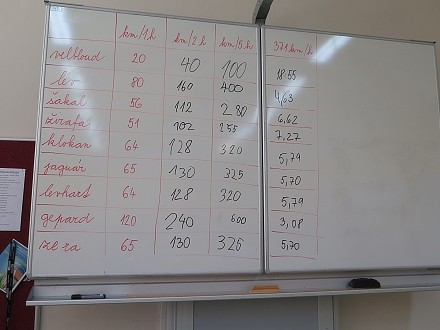 km/1h km/2h km/5h 371km/h
velbloud 20 40 100 18.55
lev 80 160 400 4,63
šakal 56 112 280 6,62
žirafa 51 102 255 7,27
klokan 64 128 320 5,79
jaguár 65 130 325 5,70
levhart 64 128 320 5,79
gepard 120 240 600 3,08
zebra 65 130 325 5,70